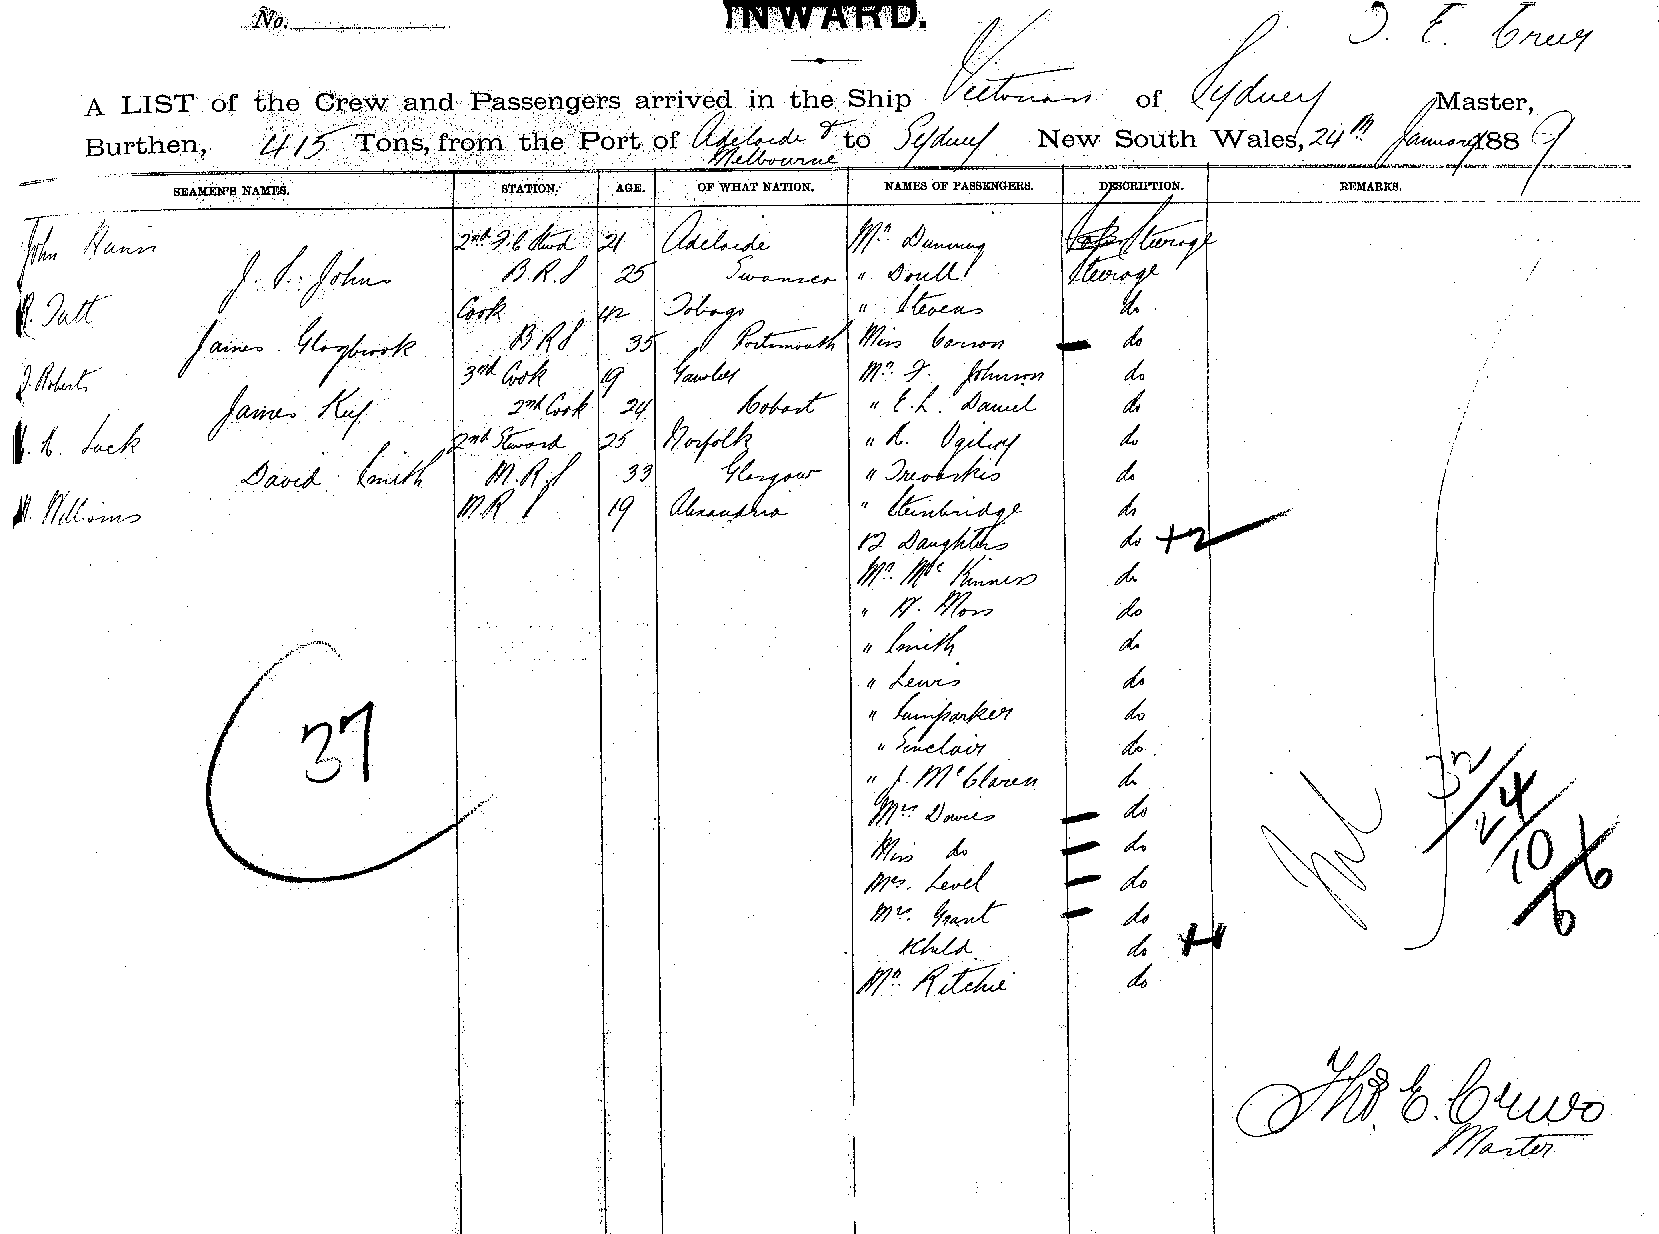 No.
INWARD.
T. E. Creer
A LIST of the Crew and Passengers arrived in the Ship Victorian of Sydney Master,
Burthen, 415 Tons, from the Port of Adelaide & Melbourne to Sydney New South Wales, 24th January 1889
SEAMEN'S NAMES. STATION. AGE. OF WHAT NATION. NAMES OF PASSENGERS. DESCRIPTION. REMARKS.
John Hann 2nd F. C Stwd 21 Adelaide Mr Dunning Steerage
J. P. Johns B.R.S 25 Swansea " Doull Steerage
Tatt Cook 42 Tobago " Stevens do
James Glazbrook B R S 35 Portsmouth Miss Carson do
J. Roberts 3rd Cook 19 Gawler Mr F. Johnson do
James Kief 2nd Cook 24 Hobart " E. L. Daniel do
H. Lack 2nd Steward 25 Norfolk " R. Ogilvy do
David Smith M. R. S 33 Glasgow " Trevaskis do
Williams M. R S 19 Alexandria " Steinbridge do
& 2 Daughters do +2
Mr. McKinness do
" H. Moss do
" Smith do
" Lewis do
" Lumparker do
" Sinclair do
37
" J. McClaren do
Mrs Davies do
Miss do do
Mrs. Level do
Mrs. Grant do
& Child do +1
Mr Ritchie do
22
24
10
6
6
Thos. E. Creer
Master